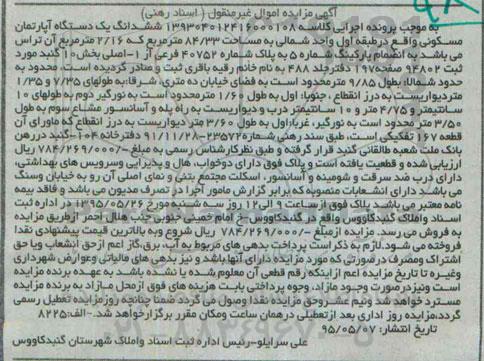 آگهی مزایده اموال غیرمنقول ( اسناد رهنی )
به موجب پرونده اجرایی کلاسه ۱۳۹۳۰۴۰۱۲۴۱۶۰۰۰۱۰۸ ششدانگ یک دستگاه آپارتمان
مسکونی واقع در طبقه اول واحد شمالی به مساحت ۸۴/۳۳ مترمربع که ۲/۱۶ مترمربع آن تراس
می باشد به انضمام پارکینگ شماره ۵ به پلاک شماره ۴۰۷۵۲ فرعی از ۱-اصلی بخش ۱۰ گنبد مورد
ثبت ۹۴۸۰۲ صفحه ۱۹۷ دفترجلد ۴۸۸ به نام خانم رقیه باقری ثبت و صادر گردیده است. محدود به
حدود شمالا: بطول ۹/۸۵ مترمحدود است به فضای خیابان ده متری، شرقا: به طولهای ۷/۳۵ و ۱/۳۵
متردیواریست به درز انقطاع ، جنوبا: اول به طول ۱/۶۰ متر محدود است به نورگیر دوم به طولهای ۱۰
سانتیمتر و ۴/۷۵ متر و ۱۰ سانتیمتر درب و دیواریست به راه پله و آسانسور مشاع سوم به طول
۳/۵۰ متر محدود است به نورگیر، غربا: اول به طول ۳/۶۰ متر دیواریست به درز انقطاع که ماورای آن
قطعه ۱۶۷ تفکیکی است، طبق سند رهنی شماره ۲۳۵۷۲-۹۱/۱۱/۲۸ دفترخانه ۱۰۴-گنبد در رهن
بانک ملت شعبه طالقانی گنبد قرار گرفته و طبق نظر کارشناس رسمی به مبلغ ۷۸۴/۲۶۹/۰۰۰/- ریال
ارزیابی شده و قطعیت یافته است و پلاک فوق دارای دوخواب، هال و پذیرایی وسرویس های بهداشتی،
دارای درب ضد سرقت و شومینه و آسانسور، اسکلت مجتمع بتنی و نمای اصلی آن رو به خیابان وسنگ
می باشد دارای انشعابات منصوبه که برابر گزارش مامور اجرا در تصرف مدیون می باشد و فاقد بیمه
نامه معتبر می باشد پلاک فوق از ساعت ۹ الی ۱۲ روز سه شنبه مورخ ۱۳۹۵/۰۵/۲۶ در اداره ثبت
اسناد واملاک گنبدکاووس واقع در گنبدکاووس-خ امام خمینی جنوبی جنب هلال احمر از طریق مزایده
به فروش می رسد. مزایده ازمبلغ ۷۸۴/۲۶۹/۰۰۰/- ریال شروع وبه بالاترین قیمت پیشنهادی نقدا
فروخته می شود.لازم به ذکر است پرداخت بدهی های مربوط به آب، برق،گاز اعم از حق انشعاب ویا حق
اشتراک ومصرف در صورتی که مورد مزایده دارای آنها باشد و نیز بدهی های مالیاتی وعوارض شهرداری
وغیره تا تاریخ مزایده اعم ازاینکه رقم قطعی آن معلوم شده یا نشده باشد به عهده برنده مزایده
است ونیزدرصورت وجود مازاد، وجوه پرداختی بابت هزینه های فوق ازمحل مازاد به برنده مزایده
مسترد خواهد شد ونیم عشر وحق مزایده نقدا وصول می گردد ضمنا چنانچه روزمزایده تعطیل رسمی
گردد،مزایده روز اداری بعد ازتعطیلی درهمان ساعت ومکان مقرر برگزار خواهد شد.-الف:۸۲۲۵
تاریخ انتشار: ۹۵/۰۵/۰۷
علی سرایلو-رئیس اداره ثبت اسناد واملاک شهرستان گنبدکاووس